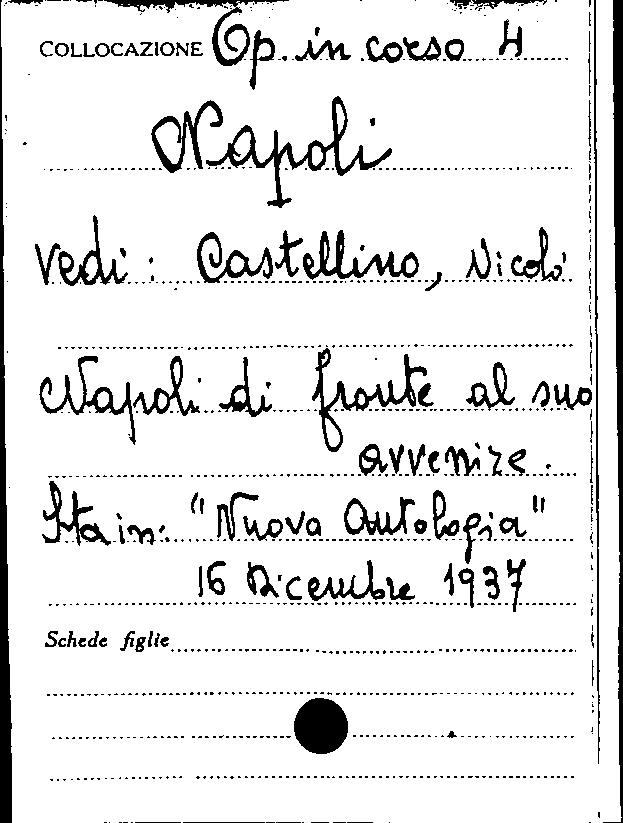 COLLOCAZIONE Op. in corso 4
Napoli
vedi: Castellino, Nicolò
Napoli di fronte al suo
avvenire.
Sta in: "Nuova Antologia"
16 Dicembre 1937
Schede figlie